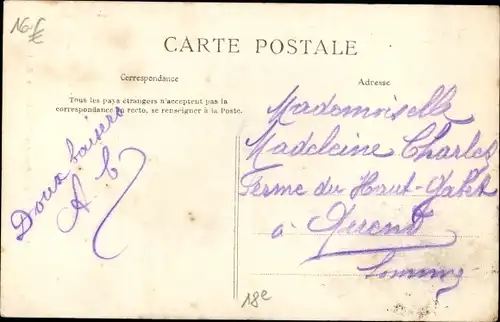 16 £
CARTE POSTALE
Correspondance
Adresse
Tous les pays étrangers n'acceptent pas la
correspondance au recto, se renseigner à la Poste.
Doux baisers
A C
Mademoiselle
Madeleine Charles
Ferme du Haut-Galet
à
Somme
18e